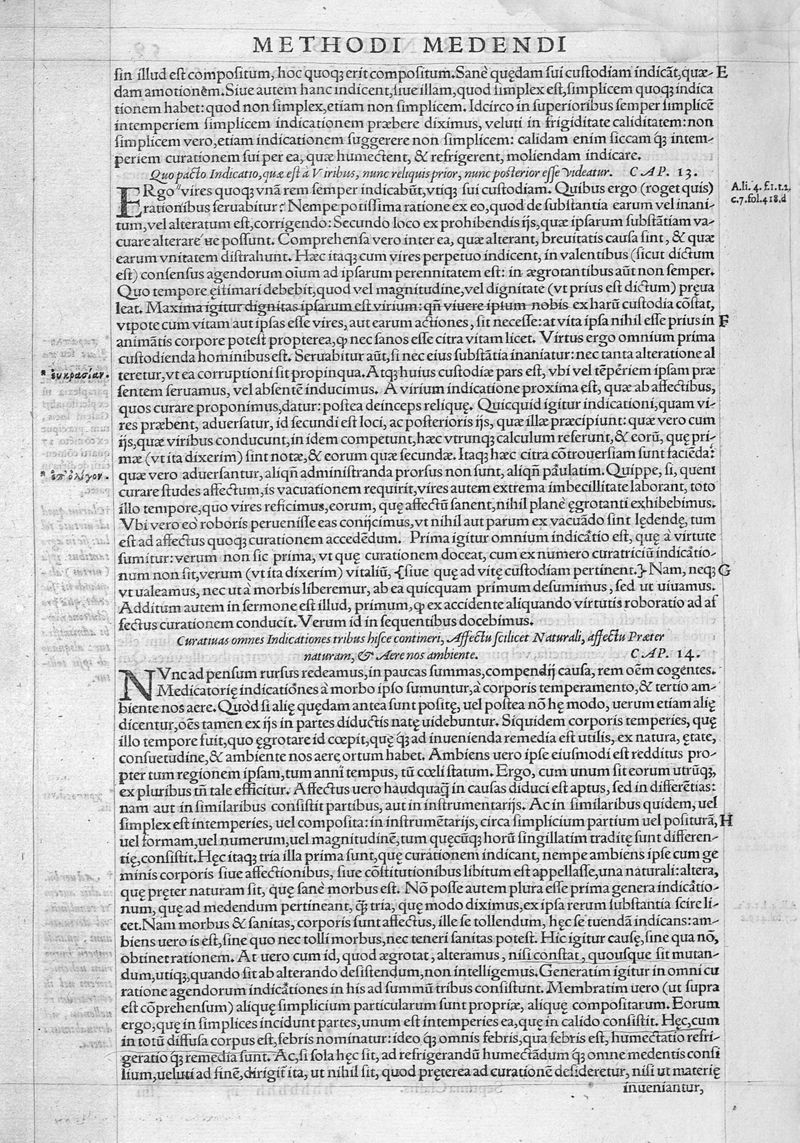 METHODI MEDENDI
sin illud est compositum, hoc quoq; erit compositum. Sanè quędam sui custodiam indicãt, quæ- E
dam amotionem. Siue autem hanc indicent, siue illam, quod simplex est, simplicem quoq; indica
tionem habet: quod non simplex, etiam non simplicem. Idcirco in superioribus semper simplicẽ
intemperiem simplicem indicationem præbere diximus, veluti in frigiditate caliditatem: non
simplicem vero, etiam indicationem suggerere non simplicem: calidam enim siccam q; intem-
periem curationem sui per ea, quæ humectent, & refrigerent, moliendam indicare.
Quo pacto Indicatio, quæ est à Viribus, nunc reliquis prior, nunc posterior esse videatur. CAP. 13.
ERgo vires quoq; vnã rem semper indicabũt, vtiq; sui custodiam. Quibus ergo (roget quis)
rationibus seruabitur? Nempe potissima ratione ex eo, quod de substantia earum vel inani-
tum, vel alteratum est, corrigendo: Secundo loco ex prohibendis ijs, quæ ipsarum substãtiam va-
cuare alterare ue possunt. Comprehensa vero inter ea, quæ alterant, breuitatis causa sint, & quæ
earum vnitatem distrahunt. Hæc itaq; cum vires perpetuo indicent, in valentibus (sicut dictum
est) consensus agendorum oĩum ad ipsarum perennitatem est: in ægrotantibus aũt non semper.
Quo tempore ęstimari debebit, quod vel magnitudine, vel dignitate (vt prius est dictum) pręua
leat. Maxima igitur dignitas ipsarum est virium: qñ viuere ipsum nobis ex harũ custodia cõstat,
vtpote cum vitam aut ipsas esse vires, aut earum actiones, sit necesse: at vita ipsa nihil esse prius in F
animãtis corpore potest propterea, ꝙ nec sanos esse citra vitam licet. Virtus ergo omnium prima
custodienda hominibus est. Seruabitur aũt, si nec eius substãtia inaniatur: nec tanta alteratione al
teretur, vt ea corruptioni sit propinqua. Atq; huius custodiæ pars est, vbi vel tẽperiem ipsam præ
sentem seruamus, vel absentẽ inducimus. A virium indicatione proxima est, quæ ab affectibus,
quos curare proponimus, datur: postea deinceps reliquę. Quicquid igitur indicationi, quam vi-
res præbent, aduersatur, id secundi est loci, ac posterioris ijs, quæ illæ præcipiunt: quæ vero cum
ijs, quæ viribus conducunt, in idem competunt, hæc vtrunq; calculum referunt, & eorũ, quę pri-
mæ (vt ita dixerim) sint notæ, & eorum quæ secundæ. Itaq; hæc citra cõtrouersiam sunt faciẽda:
quæ vero aduersantur, aliqñ administranda prorsus non sunt, aliqñ paulatim. Quippe, si, quem
curare studes affectum, is vacuationem requirit, vires autem extrema imbecillitate laborant, toto
illo tempore, quo vires reficimus, eorum, quę affectũ sanent, nihil planè ęgrotanti exhibebimus.
Vbi vero eo roboris peruenisse eas conijcimus, vt nihil aut parum ex vacuãdo sint lędendę, tum
est ad affectus quoq; curationem accedẽdum. Prima igitur omnium indicatio est, quę à virtute
sumitur: verum non sic prima, vt quę curationem doceat, cum ex numero curatriciũ indicatio-
num non sit, verum (vt ita dixerim) vitaliũ, {siue quę ad vitę custodiam pertinent.} Nam, neq; G
vt ualeamus, nec ut à morbis liberemur, ab ea quicquam primum desumimus, sed ut uiuamus.
Additum autem in sermone est illud, primum, ꝙ ex accidente aliquando virtutis roboratio ad af
fectus curationem conducit. Verum id in sequentibus docebimus.
Curatiuas omnes Indicationes tribus hisce contineri, Affectu scilicet Naturali, affectu Præter
naturam, & Aere nos ambiente. CAP. 14.
NVnc ad pensum rursus redeamus, in paucas summas, compendij causa, rem oẽm cogentes.
Medicatorię indicationes à morbo ipso sumuntur, à corporis temperamento, & tertio am-
biente nos aere. Quòd si alię quędam antea sunt positę, uel postea nõ hę modo, uerum etiam alię
dicentur, oẽs tamen ex ijs in partes diductis natę uidebuntur. Siquidem corporis temperies, quę
illo tempore fuit, quo ęgrotare id cœpit, quę q; ad inuenienda remedia est utilis, ex natura, ętate,
consuetudine, & ambiente nos aere ortum habet. Ambiens uero ipse eiusmodi est redditus pro-
pter tum regionem ipsam, tum anni tempus, tũ cœli statum. Ergo, cum unum sit eorum utrũq;,
ex pluribus tñ tale efficitur. Affectus uero haudquaq̃ in causas diduci est aptus, sed in differẽtias:
nam aut in similaribus consistit partibus, aut in instrumentarijs. Ac in similaribus quidem, uel
simplex est intemperies, uel composita: in instrumẽtarijs, circa simplicium partium uel positurã, H
uel formam, uel numerum, uel magnitudinẽ, tum quęcũq; horũ singillatim traditę sunt differen-
tię, consistit. Hęc itaq; tria illa prima sunt, quę curationem indicant, nempe ambiens ipse cum ge
minis corporis siue affectionibus, siue cõstitutionibus libitum est appellasse, una naturali: altera,
quę pręter naturam sit, quę sanè morbus est. Nõ posse autem plura esse prima genera indicatio-
num, quę ad medendum pertineant, q̃; tria, quę modo diximus, ex ipsa rerum substantia scire li-
cet. Nam morbus & sanitas, corporis sunt affectus, ille se tollendum, hęc se tuendã indicans: am-
biens uero is est, sine quo nec tolli morbus, nec teneri sanitas potest. Hic igitur causę, sine qua nõ,
obtinet rationem. At uero cum id, quod ægrotat, alteramus, nisi constat, quousque sit mutan-
dum, utiq;, quando sit ab alterando desistendum, non intelligemus. Generatim igitur in omni cu
ratione agendorum indicationes in his ad summũ tribus consistunt. Membratim uero (ut supra
est cõprehensum) alię simplicium particularum sunt propriæ, alię compositarum. Eorum
ergo, quę in simplices incidunt partes, unum est intemperies ea, quę in calido consistit. Hęc, cum
in totũ diffusa corpus est, febris nominatur: ideo q; omnis febris, qua febris est, humectatio refri-
geratio q; remedia sunt. Ac, si sola hęc sit, ad refrigerandũ humectãdum q; omne medentis consi
lium, ueluti ad finẽ, dirigit ita, ut nihil sit, quod pręterea ad curationẽ desideretur, nisi ut materię
inueniantur,
A.li.4. f.1.t.2.
c.7.fol.418.d
* ἐυκρασίαν.
* ἐπ' ὀλίγον.